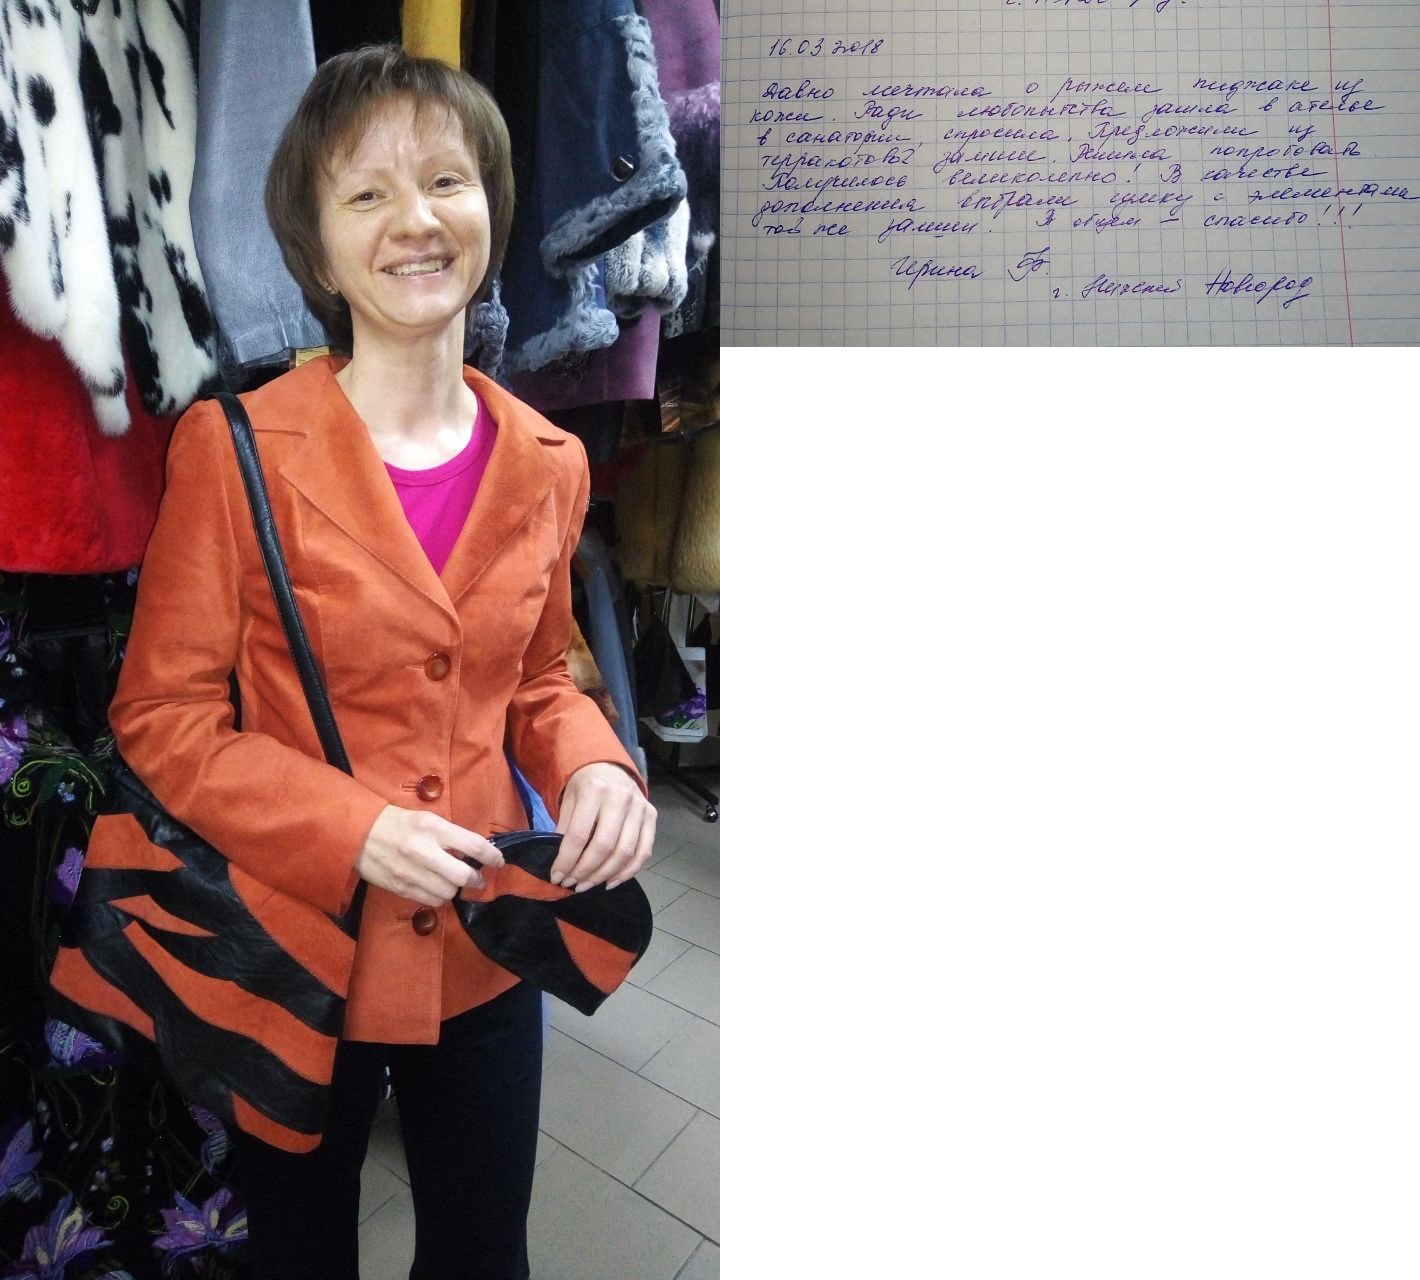 16.03.2018
Давно мечтала о рыжем пиджаке из
кожи. Ради любопытства зашла в ателье
в санатории, спросила. Предложили из
терракотовой замши. Решилась попробовать.
Получилось великолепно! В качестве
дополнения выбрали сумку с элементами
той же замши. В общем – спасибо!!!
Ирина Б
г. Нижний Новгород